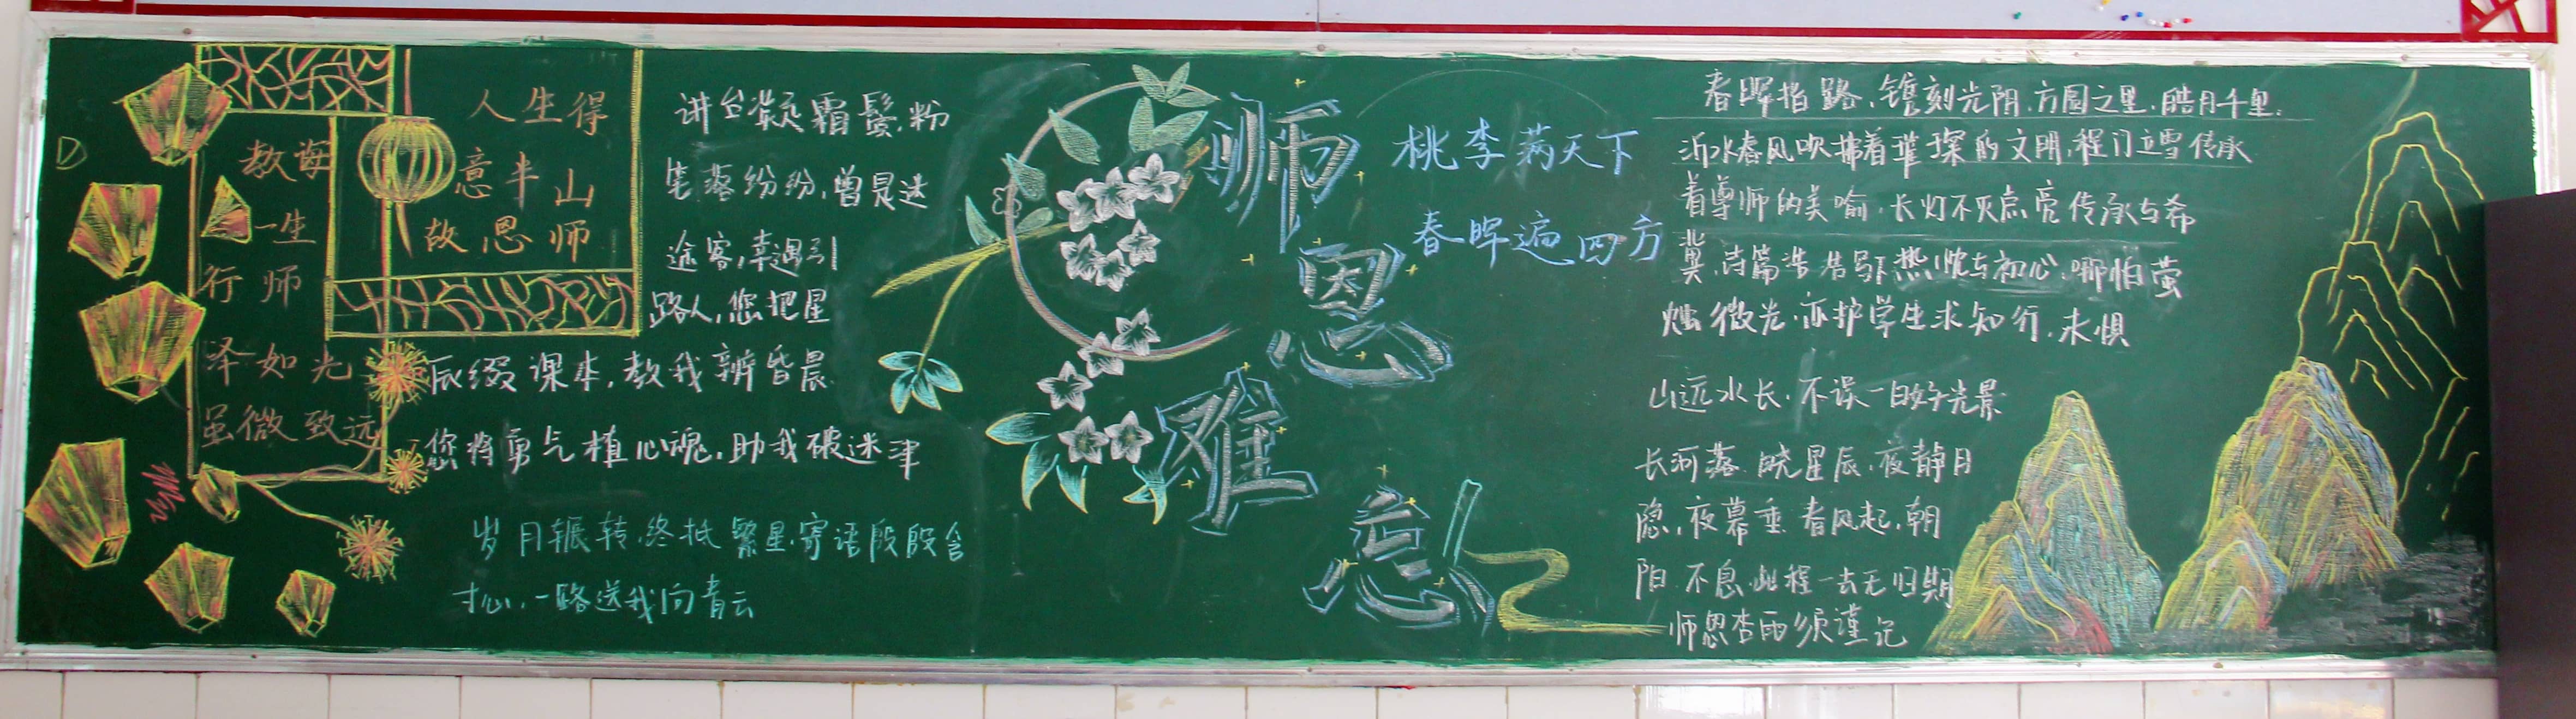 教诲
一生
行师
泽如光
虽微致远
人生得
意半山
故恩师
讲台凝霜鬓,粉
笔落纷纷,曾是迷
途客,幸遇引
路人,您把星
辰缀课本,教我辨昏晨
您将勇气植心魂,助我破迷津
岁月辗转,终抵繁星,寄语段段含
寸心,一路送我向青云
师恩难忘
桃李满天下
春晖遍四方
春晖指路,镌刻光阴,方圆之里,皓月千里.
沂水春风吹拂着璀璨的文明,程门立雪传承
着尊师的美喻,长灯不灭点亮传承与希
冀,诗篇浩若写下热忱与初心,哪怕萤
烛微光,亦护学生求知行,未惧
山远水长,不误一日好光景
长河落,晓星辰,夜静月
隐,夜幕垂,春风起,朝
阳不息,此程一去无归期
师恩杏雨须谨记